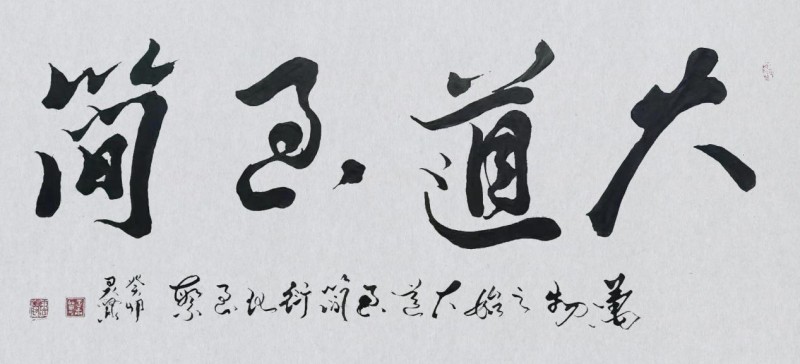 大道至简
萬物之始大道至簡衍化至繁
癸卯